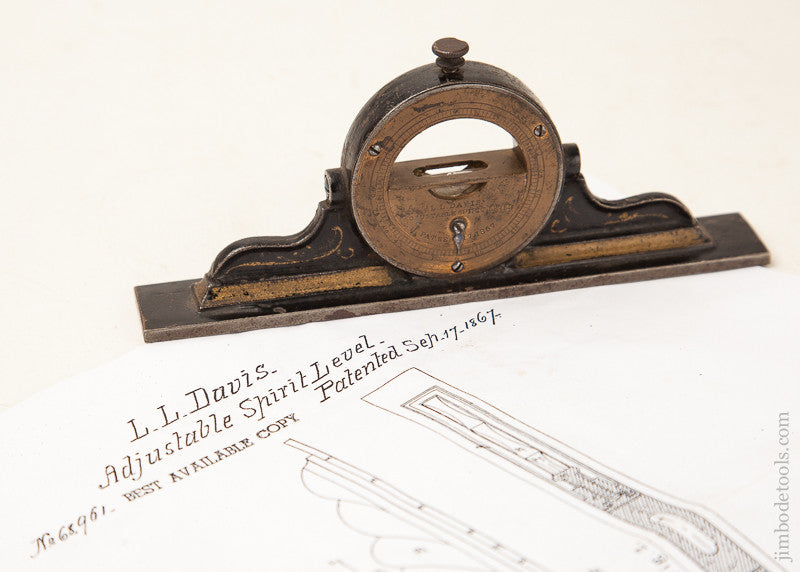 DAVIS
PATENT
1867
L. L. Davis.
Adjustable Spirit Level.
No 68,961. Patented Sep. 17. 1867.
BEST AVAILABLE COPY
jimbodetools.com